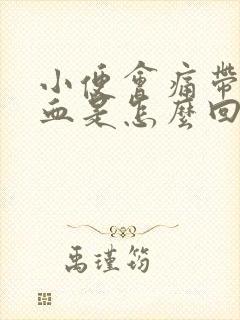 小便會痛帶
血是怎麼回
禹瑾筠